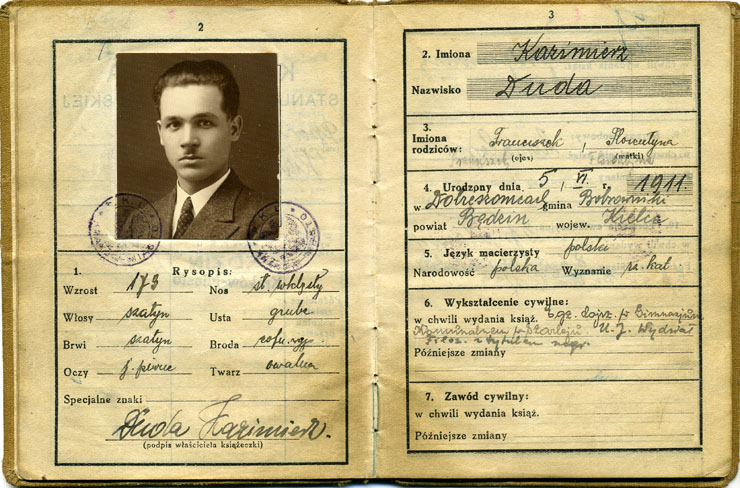 2
1. Rysopis:
Wzrost 173 Nos
Włosy szatyn Usta grube
Brwi szatyn Broda
Oczy Twarz owalna
Specjalne znaki
Duda Kazimierz.
(podpis właściciela książeczki)
3
2. Imiona Kazimierz
Nazwisko Duda
3.
Imiona
rodziców: Franciszek , Florentyna
(ojca) (matki)
4. Urodzony dnia 5 , VI r. 1911
w gmina
powiat Będzin wojew. Kielce
5. Język macierzysty polski
Narodowość polska Wyznanie rz. kat
6. Wykształcenie cywilne:
w chwili wydania książ. Egz. dojrz. w Gimnazjum
U. J. Wydział
Filoz.
Późniejsze zmiany
7. Zawód cywilny:
w chwili wydania książ.
Późniejsze zmiany